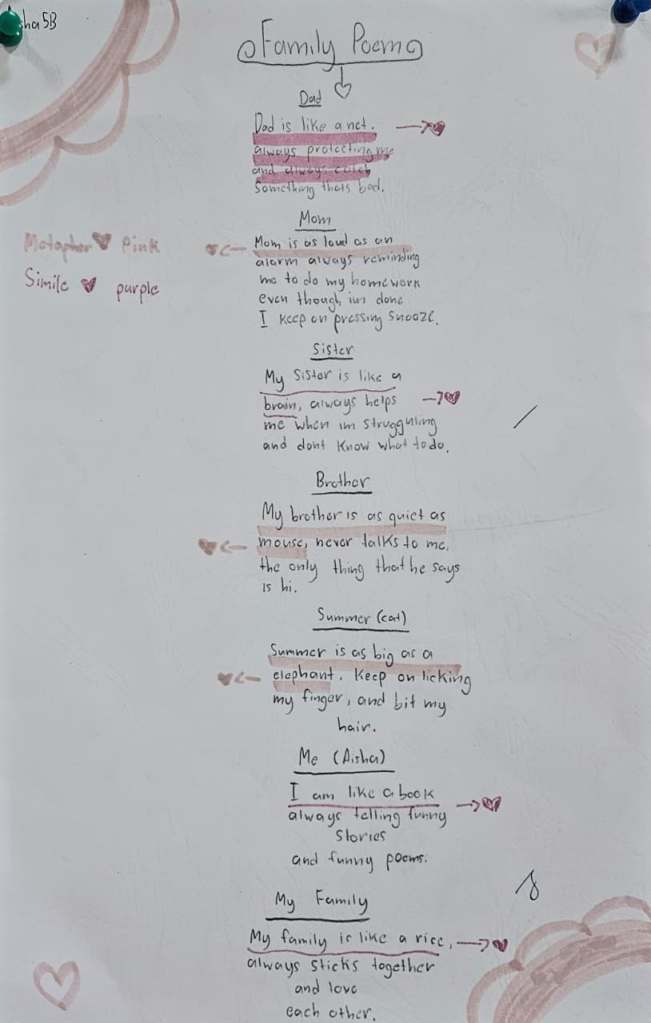 sha 5B
Family Poem
Dad
Dad is like a net.
always protecting me
and always catch
Something thats bad.
Metapher pink
Simile purple
Mom
Mom is as loud as an
alarm always reminding
me to do my homework
even though im done
I keep on pressing snooze.
Sister
My Sister is like a
brain, always helps
me when im strugguling
and dont know what to do.
Brother
My brother is as quiet as
mouse, never talks to me.
the only thing that he says
is hi.
Summer (cat)
Summer is as big as a
elephant. Keep on licking
my finger, and bit my
hair.
Me (Aisha)
I am like a book
always telling funny
stories
and funny poems.
My Family
My family is like a rice,
always sticks together
and love
each other.